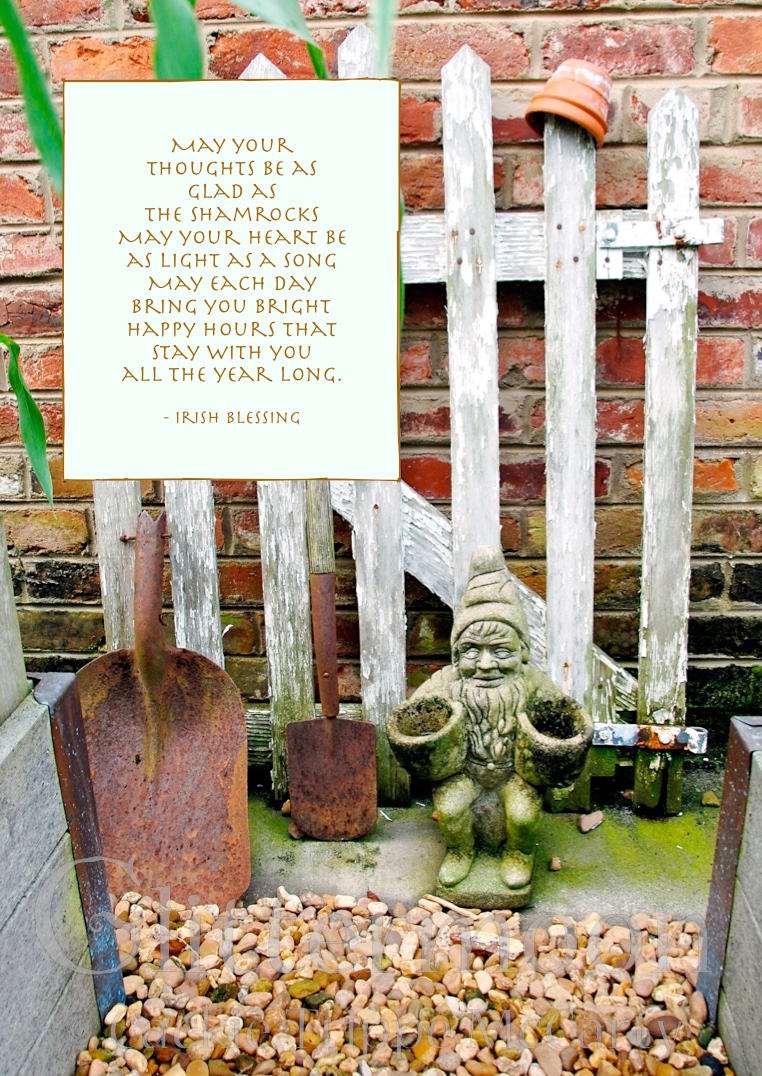 May your
thoughts be as
glad as
the shamrocks
May your heart be
as light as a song
May each day
bring you bright
happy hours that
stay with you
all the year long.
- Irish Blessing
Glittermoon
Jackie Tripp McCarty